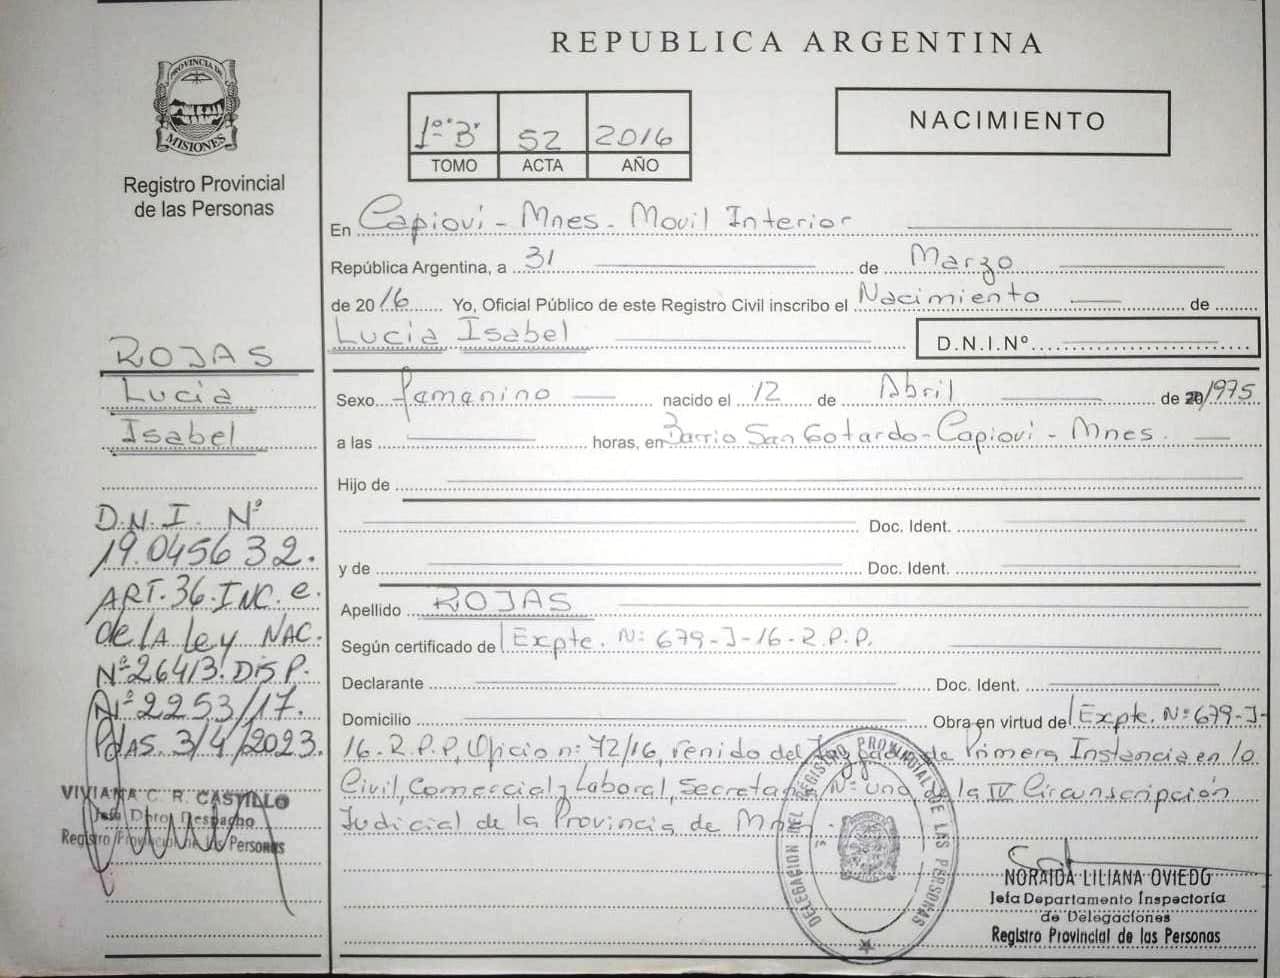 REPUBLICA ARGENTINA
PROVINCIA DE
MISIONES
Registro Provincial
de las Personas
1º "B" 52 2016
TOMO ACTA AÑO
NACIMIENTO
En Capioví - Mnes - Movil Interior
República Argentina, a 31 de Marzo
de 2016 Yo, Oficial Público de este Registro Civil inscribo el Nacimiento de
Lucia Isabel D.N.I.Nº
Sexo femenino nacido el 12 de Abril de 20 1975
a las horas, en Barrio San Gotardo - Capioví - Mnes.
Hijo de
Doc. Ident.
y de Doc. Ident.
Apellido ROJAS
Según certificado de Expte. Nº 679-J-16-R.P.P.
Declarante Doc. Ident.
Domicilio Obra en virtud de Expte. Nº 679-J-
16-R.P.P, Oficio nº 72/16, venido del Juzgado de Primera Instancia en lo
Civil, Comercial y Laboral, Secretaria Nº uno, de la IV Circunscripción
Judicial de la Provincia de Mnes.
ROJAS
Lucia
Isabel
D.N.I. Nº
19.045632.
ART. 36. INC. e.
de LA Ley NAC.
Nº 26413. DISP.
Nº 2253/17.
PdAS. 3/4/2023.
VIVIANA C. R. CASTILLO
Jefa Dpto. Despacho
Registro Provincial de las Personas
DELEGACION DEL REGISTRO PROVINCIAL DE LAS PERSONAS
NORAIDA LILIANA OVIEDO
Jefa Departamento Inspectoría
de Delegaciones
Registro Provincial de las Personas